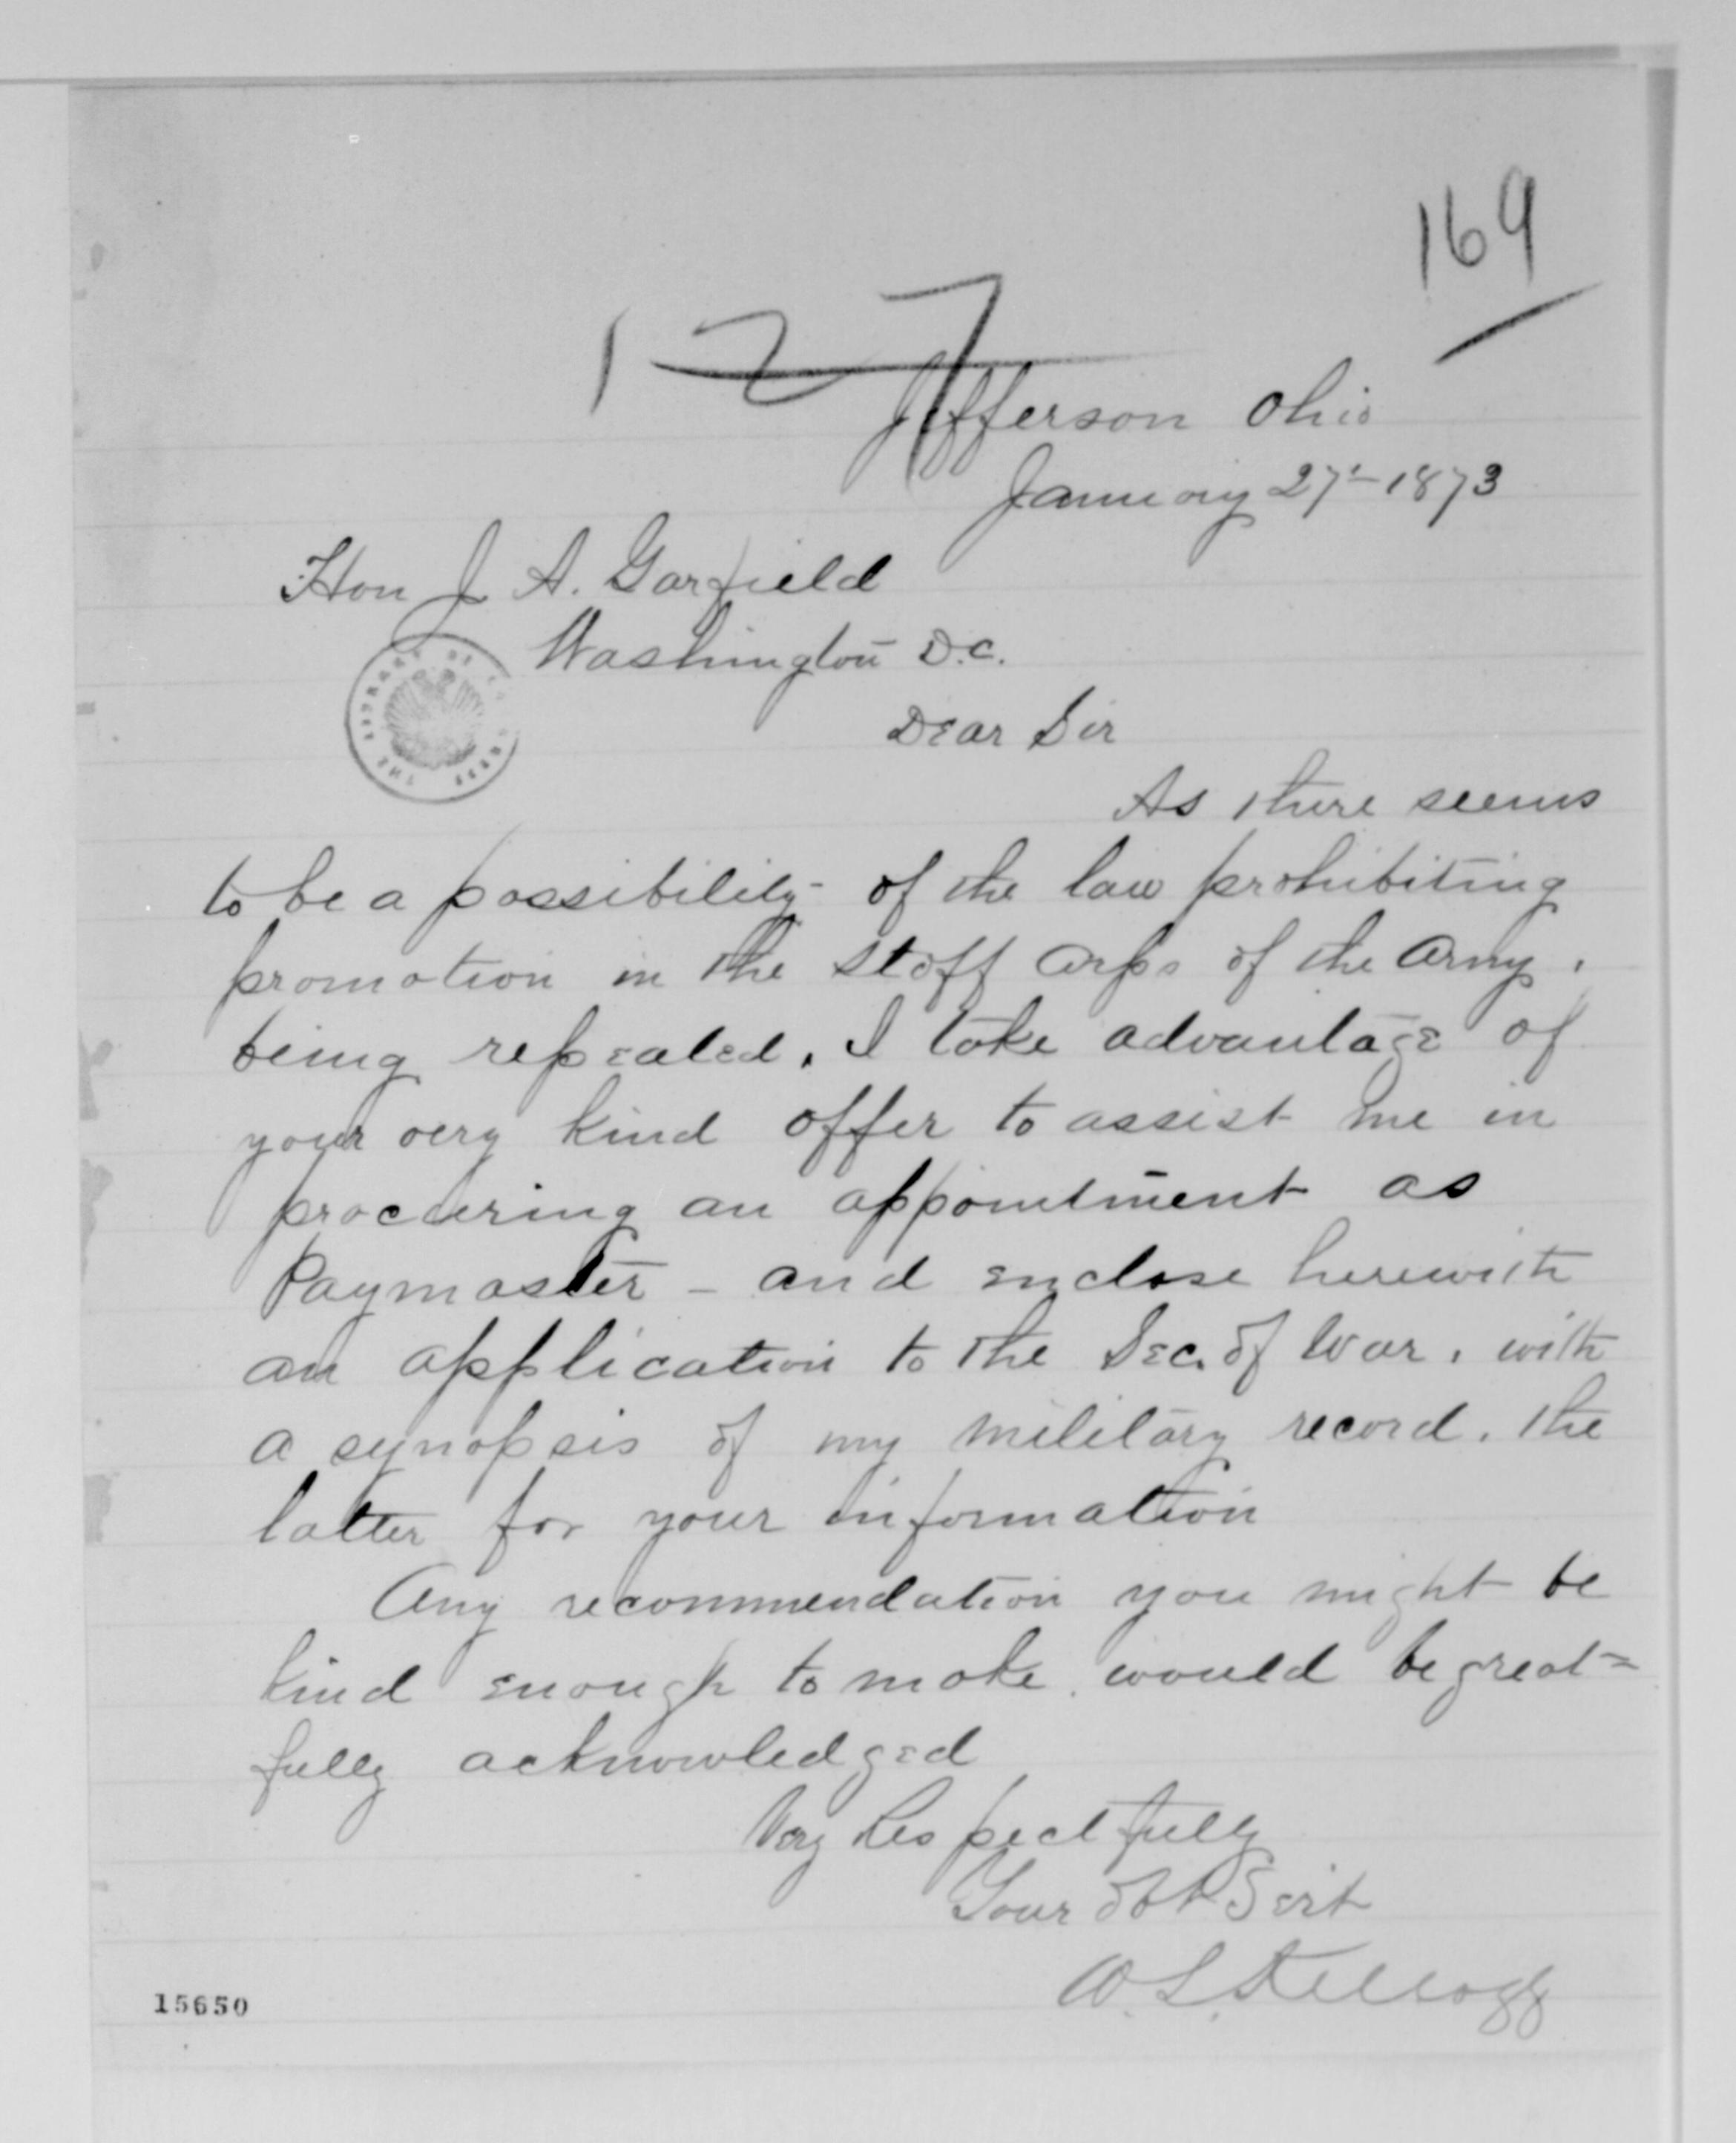 169
127
Jefferson Ohio
January 27'- 1873
Hon J A. Garfield
Washington D.C.
THE LIBRARY OF CONGRESS
Dear Sir
As there seems
to be a possibility of the law prohibiting
promotion in the Staff Corps of the Army,
being repealed, I take advantage of
your very kind offer to assist me in
procuring an appointment as
Paymaster - and enclose herewith
an application to the Sec. of War, with
a synopsis of my military record, the
latter for your information
Any recommendation you might be
kind enough to make, would be great=
fully acknowledged
Very Respectfully
Your obt Servt
W. L. Kellogg
15650